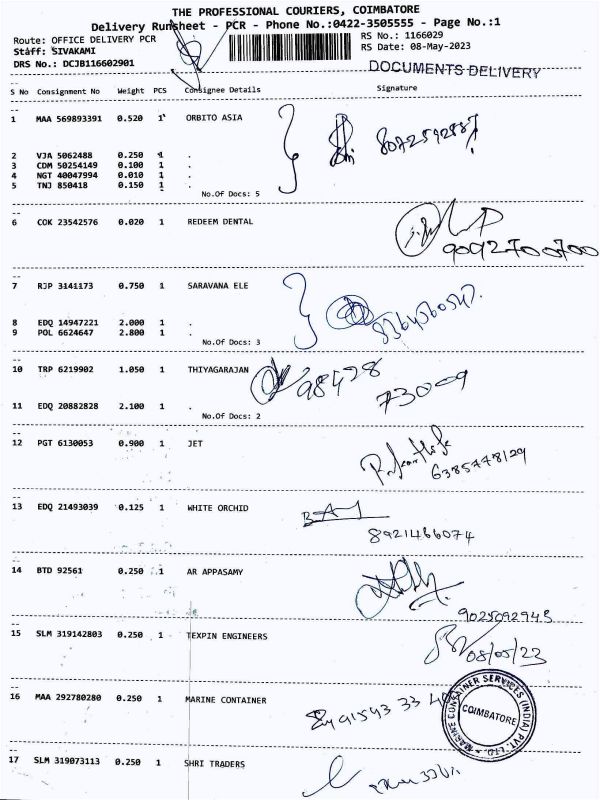 THE PROFESSIONAL COURIERS, COIMBATORE
Delivery Runsheet - PCR - Phone No.:0422-3505555 - Page No.:1
Route: OFFICE DELIVERY PCR
RS No.: 1166029
Staff: SIVAKAMI
RS Date: 08-May-2023
DRS No.: DCJB116602901
DOCUMENTS DELIVERY
S No Consignment No Weight PCS Consignee Details Signature
1 MAA 569893391 0.520 1 ORBITO ASIA
2 VJA 5062488 0.250 1 .
3 CDM 50254149 0.100 1 .
4 NGT 40047994 0.010 1 .
5 TNJ 850418 0.150 1 .
No.Of Docs: 5
6 COK 23542576 0.020 1 REDEEM DENTAL
9092700700
7 RJP 3141173 0.750 1 SARAVANA ELE
8 EDQ 14947221 2.000 1 .
9 POL 6624647 2.800 1 .
No.Of Docs: 3
10 TRP 6219902 1.050 1 THIYAGARAJAN
98428
73009
11 EDQ 20882828 2.100 1 .
No.Of Docs: 2
12 PGT 6130053 0.900 1 JET
6385778129
13 EDQ 21493039 0.125 1 WHITE ORCHID
8921466074
14 BTD 92561 0.250 1 AR APPASAMY
9025092943
15 SLM 319142803 0.250 1 TEXPIN ENGINEERS
08/05/23
16 MAA 292780280 0.250 1 MARINE CONTAINER
MARINE CONTAINER SERVICES (INDIA) PVT. LTD.
COIMBATORE
17 SLM 319073113 0.250 1 SHRI TRADERS